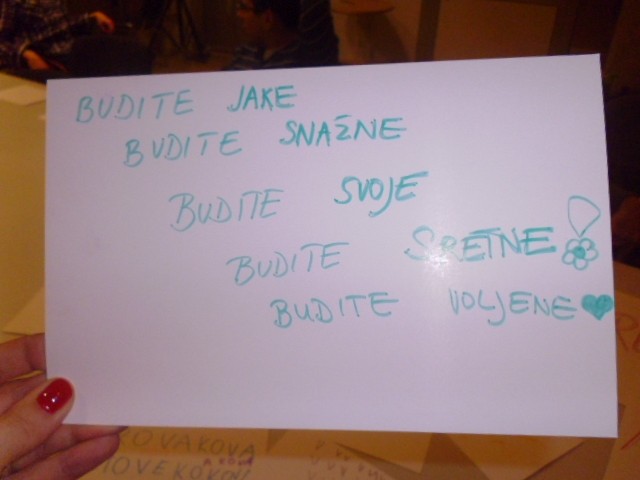 BUDITE JAKE
BUDITE SNAŽNE
BUDITE SVOJE
BUDITE SRETNE!
BUDITE VOLJENE